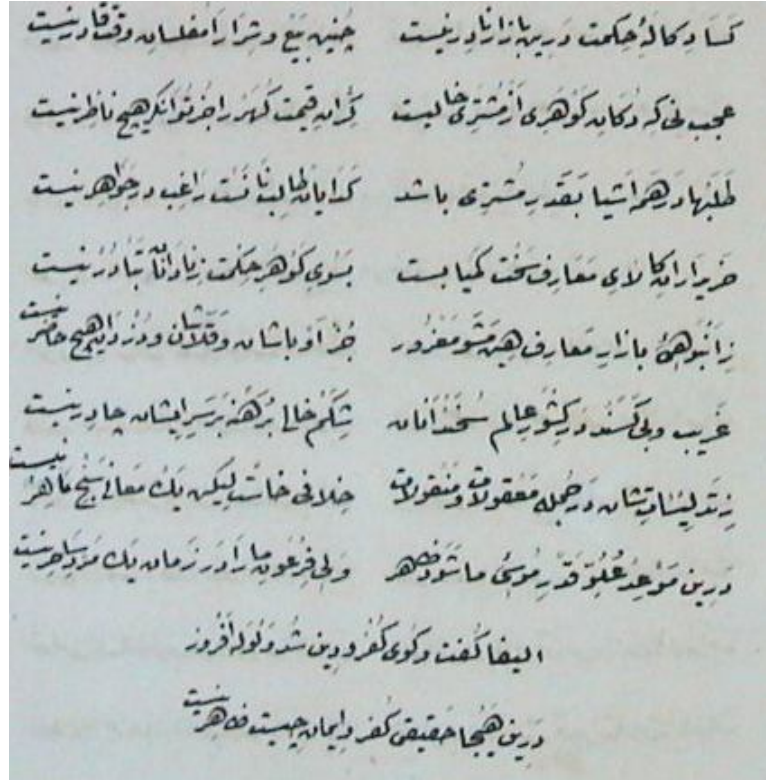 کساد کالهٔ حکمت درین بازار نادر نیست چنین بیع و شرا را مفلسان وقت قادر نیست
عجب نی که دکان کوهری از مشتری خالیست کران قیمت کهر را جز توانکر هیچ ناظر نیست
طلبها در هم اشیا بقدر مشتری باشد کدایان طالب نانست راغب در جواهر نیست
خریداران کالای معارف سخت کمیابست بسوی کوهر حکمت ز نادانان تبادر نیست
ز انبوهئ بازار معارف هین مشو مغرور جز اوباشان و قلاشان و دزدان هیچ حاضر نیست
غریب و بی کسند در کشور عالم سخندانان شکم خالی برهنه بر سر ایشان چادر نیست
ز تدلیسات شان در جمله معقولات و منقولات خلافی خاست لیکن یک معانی سنج ماهر نیست
درین موعد علو قدر موسئ ما شود ظهر ولی فرعون ما را در زمان یک مرد ساحر نیست
الیفا کفت وکوی کفر و دین شد ولوله افروز
درین هیجا حقیقی کفر و ایمان چیست ظاهر نیست